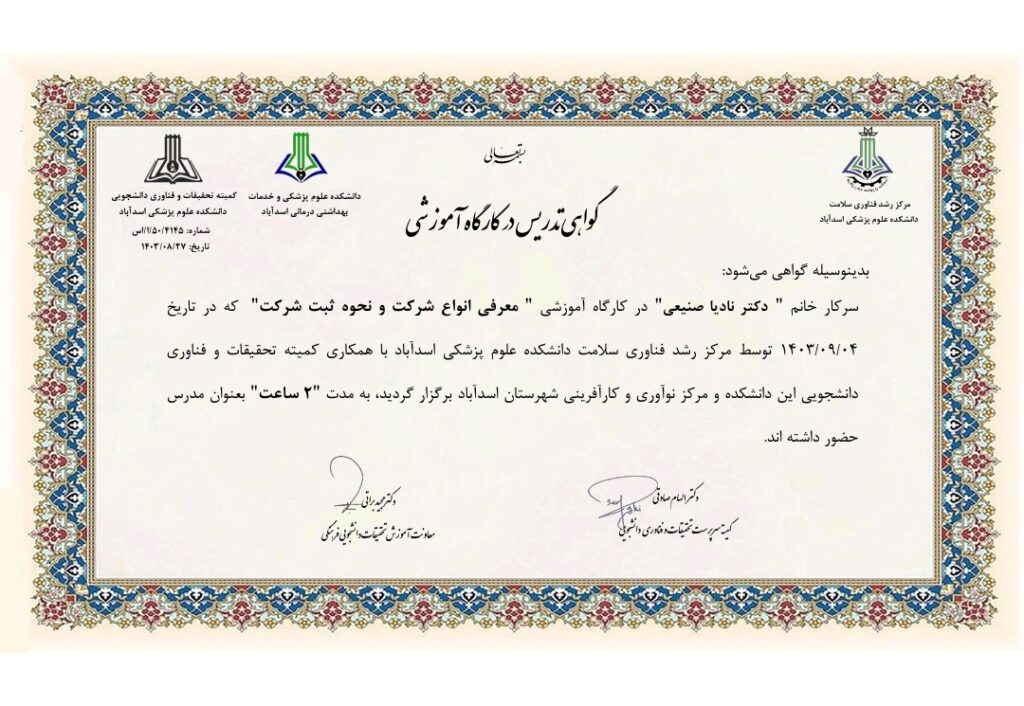 بسمه‌تعالی
گواهی تدریس در کارگاه آموزشی
مرکز رشد فناوری سلامت
دانشکده علوم پزشکی اسدآباد
دانشکده علوم پزشکی و خدمات
بهداشتی درمانی اسدآباد
کمیته تحقیقات و فناوری دانشجویی
دانشکده علوم پزشکی اسدآباد
شماره: ۱/۵۰/۴۱۴۵/اس
تاریخ: ۱۴۰۳/۰۸/۲۷
بدینوسیله گواهی می‌شود:
سرکار خانم " دکتر نادیا صنیعی" در کارگاه آموزشی " معرفی انواع شرکت و نحوه ثبت شرکت" که در تاریخ
۱۴۰۳/۰۹/۰۴ توسط مرکز رشد فناوری سلامت دانشکده علوم پزشکی اسدآباد با همکاری کمیته تحقیقات و فناوری
دانشجویی این دانشکده و مرکز نوآوری و کارآفرینی شهرستان اسدآباد برگزار گردید، به مدت "۲ ساعت" بعنوان مدرس
حضور داشته اند.
دکتر الهام صادقی
کمیته سرپرست تحقیقات و فناوری دانشجویی
دکتر مجید براتی
معاونت آموزش تحقیقات دانشجویی فرهنگی